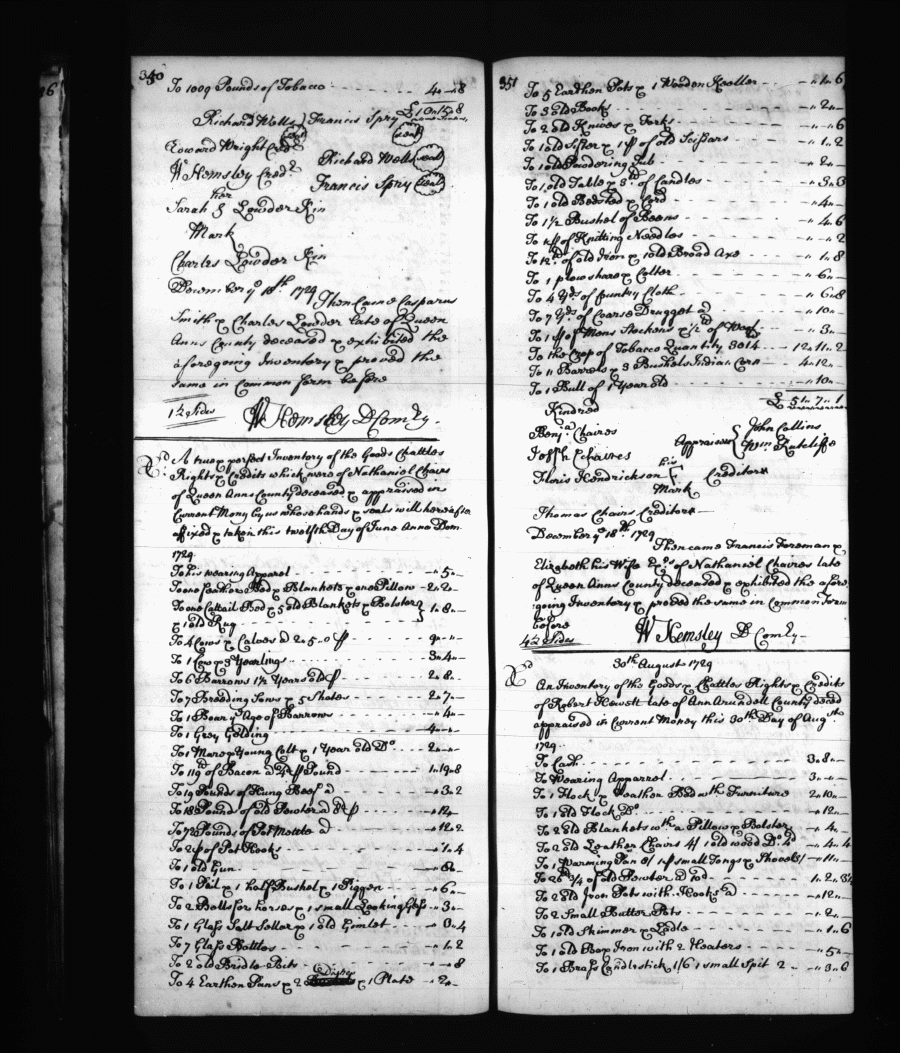 350
To 1009 Pounds of Tobacco - - - 4„ „8
£ 10„12„8
Richard Wells } Francis Spry
(seal) (seal)
Edward Wright Credr
Richard Wells (seal)
Wm Hemsley Credr
Francis Spry (seal)
her
Sarah S Lowder Kin
Mark
Charles Lowder Kin
December ye 18th. 1729
Then came Casparus
Smith & Charles Lowder late of Queen
Anns County deceased & exhibited the
aforegoing Inventory & proved the
same in Common form before
1½ Sides W Hemsley D Comry.
A true & perfect Inventory of the Goods Chattles
Rights & Credits which were of Nathaniel Chairs
of Queen Anns County deceased & appraised in
Current Mony by us whose hands & seals will hereafter
affixed & taken this twelfth Day of June Anno Dom
1729
To his wearing Apparel - - - „5„-
To one feather Bed & Blankets & one Pillow - 2„2„-
To one Cattail Bed & 5 old Blankets & Bolster } 1„8„-
& 1 old Rug
To 4 Cows & Calves @ 2„5„0 p - - - 9„-„-
To 1 Cow & 3 Yearlings - - - 3„4„-
To 6 Barrows 1½ Years old p - - - 2„8„-
To 7 Breeding Sows & 5 Shotes - - - 2„7„-
To 1 Boar ye Age of Barrows - - - -„4„-
To 1 Grey Gelding - - - 4„-„-
To 1 Mare & Young Colt & 1 Year old Do - - - 2„-„-
To 119 ld of Bacon @ 4d p Pound - - - 1„19„8
To 19 Pounds of Hung Beef @ - - - „3„2
To 18 Pound of old Pewter @ 8d p - - - „12„-
To 73 Pounds of Pot Mettle @ - - - „12„2
To 2 p of Pot Hooks - - - „1„4
To 1 old Gun - - - „8„
To 1 Pail & 1 half Bushel & 1 Piggen - - - „6„-
To 2 Bells for horses & 1 small Looking Glass - „3„-
To 1 Glass Salt Sellar & 1 old Gimlet - - - 0„4
To 7 Glass Bottles - - - „1„2
To 2 old Bridle Bits - - - „-„8
Dishes
To 4 Earthen Pans & 2 & 1 Plate - „2„-
351
To 5 Earthen Pots & 1 Wooden Keeller - - - „1„6
To 3 old Books - - - „2„-
To 2 old Knives & Forks - - - „-„6
To 1 old Sifter & 1 p of old Scissars - - - „1„2
To 1 old Powdering Tub - - - „2„-
To 1 old Table & 3 ld of Candles - - - „3„3
To 1 old Bedsted & Cord - - - „4„-
To 1½ Bushel of Beans - - - „4„6
To 1 p of Knitting Needles - - - „-„2
To 12 ld of old Iron & 1 old Broad Axe - - - „1„8
To 1 plow share & Colter - - - „6„-
To 4 Yds of Country Cloth - - - „6„8
To 7 Yds of Coarse Drugget @ - - - „10„-
To 1 p of Mens Stockens & ½ ld of Woof - - - „3„-
To the Crop of Tobacco Quantity 3014 - - - 12„11„2
To 11 Barrels & 3 Bushels Indian Corn - - - 4„12„-
To 1 Bull of 1 Year old - - - „10„-
£ 51„7„1
Kindred
Benja Chaires John Collins
Appraisers {
Joseph Chaires Wm Ratcliffe
his
Floris Hendrickson Creditor
Mark
Thomas Chairs Creditor
December ye 18th 1729
Then came Francis Foreman &
Elizabeth his Wife Exs of Nathaniel Chaires late
of Queen Anns County deceased & exhibited the afore
going Inventory & proved the same in Common Form
before
4½ Sides W Hemsley D Comry
30th August 1729
An Inventory of the Goods & Chattles Rights & Credits
of Robert Hewett late of Ann Arundell County deced
appraised in Current Money this 30th Day of Augst
1729
To Cash - - - 3„8„-
To Wearing Apparrel - - - 3„-„-
To 1 Flock & Feather Bed with Furniture 2„10„-
To 1 old Flock Do - - - „12„-
To 2 old Blankets wth a Pillow & Bolster - „4„-
To 2 old Leather Chairs 4/ 1 old wood Do 4d - „4„4
To 1 Warming Pan 8/ 1 p small Tongs & Shovel 3/ - „11„-
To 26 ld ¾ of old Pewter @ 10d - - - 1„2„3½
To 2 old Iron Pots with Hooks @ - - - „12„-
To 2 Small Butter Pots - - - „2„-
To 1 old Skimmer & Ladle - - - „1„6
To 1 old Box Iron with 2 Heaters - - - „5„-
To 1 Brass Candlestick 1/6 1 small Spit 2 - „3„6